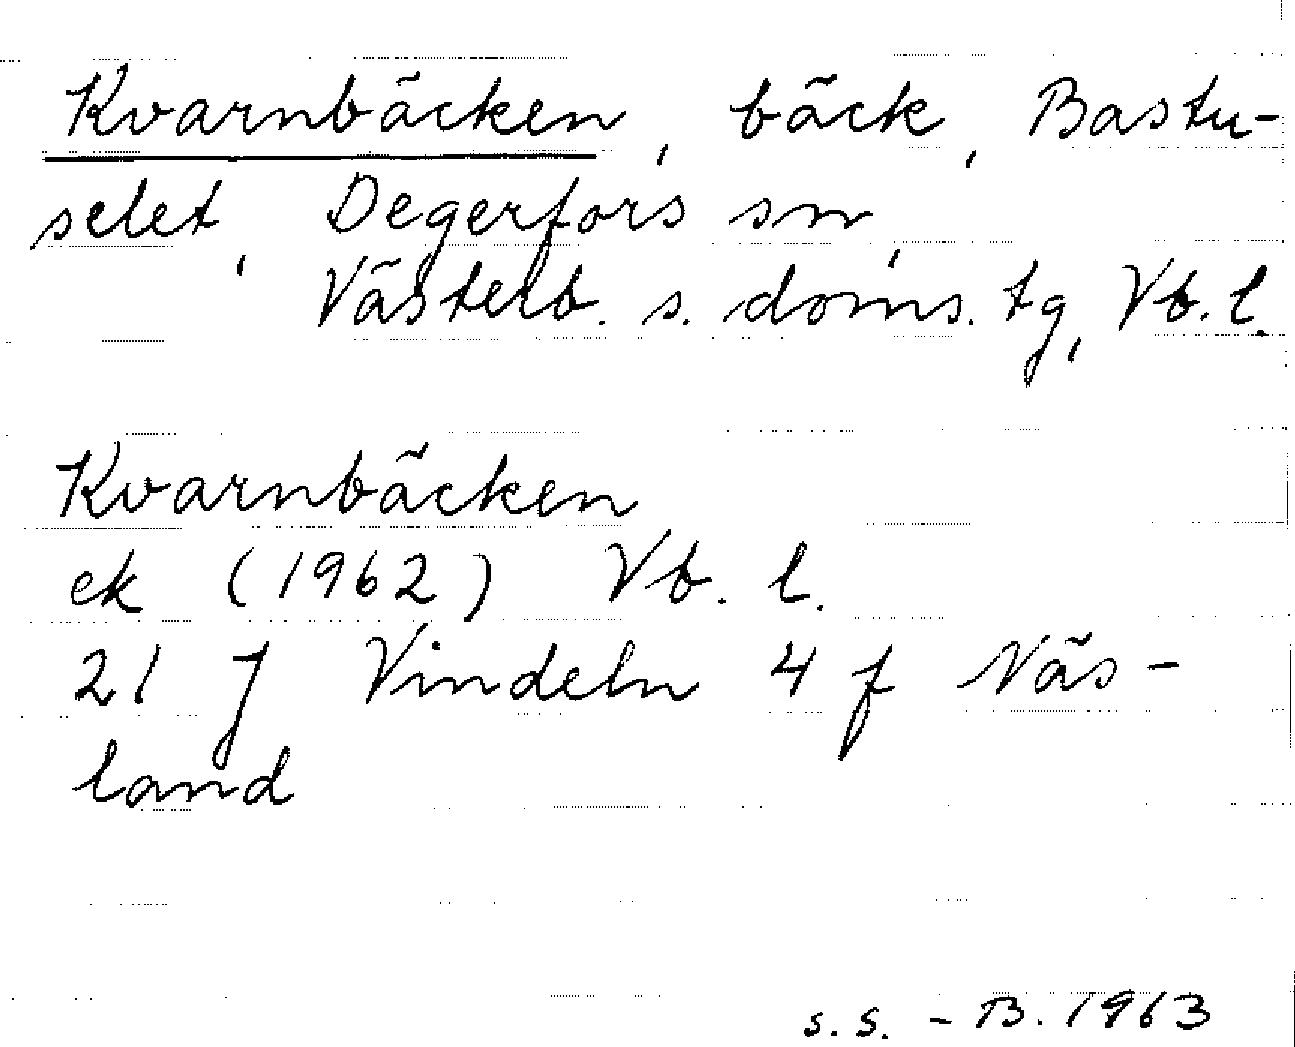 Kvarnbäcken, bäck, Bastu-
selet, Degerfors sn,
Västerb. s. doms. tg, Vb. l.
Kvarnbäcken
ek (1962) Vb. l.
21 J Vindeln 4 f Näs-
land
s. s. - B. 1963